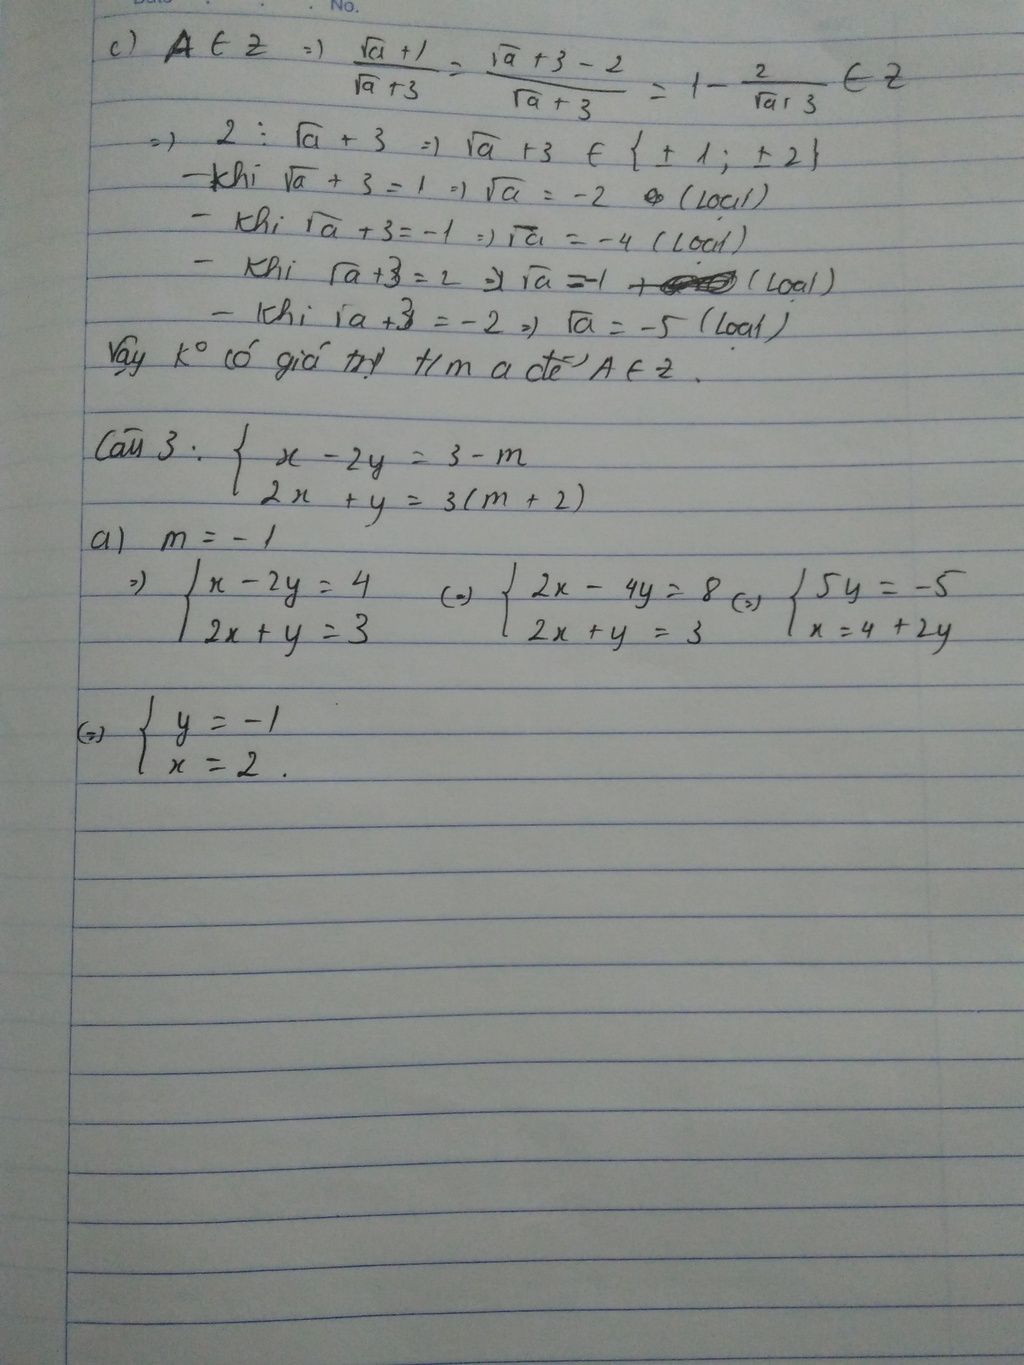 No.
c) A ∈ Z => (√a + 1)/(√a + 3) = (√a + 3 - 2)/(√a + 3) = 1 - 2/(√a + 3) ∈ Z
=> 2 ⋮ √a + 3 => √a + 3 ∈ {±1; ±2}
- Khi √a + 3 = 1 => √a = -2 (Loại)
- Khi √a + 3 = -1 => √a = -4 (Loại)
- Khi √a + 3 = 2 => √a = -1 (Loại)
- Khi √a + 3 = -2 => √a = -5 (Loại)
Vậy k° có giá trị t/m a để A ∈ Z.
Câu 3: { x - 2y = 3 - m
2x + y = 3(m + 2)
a) m = -1
=> { x - 2y = 4 (=) { 2x - 4y = 8 (=) { 5y = -5
2x + y = 3 2x + y = 3 x = 4 + 2y
(=) { y = -1
x = 2.